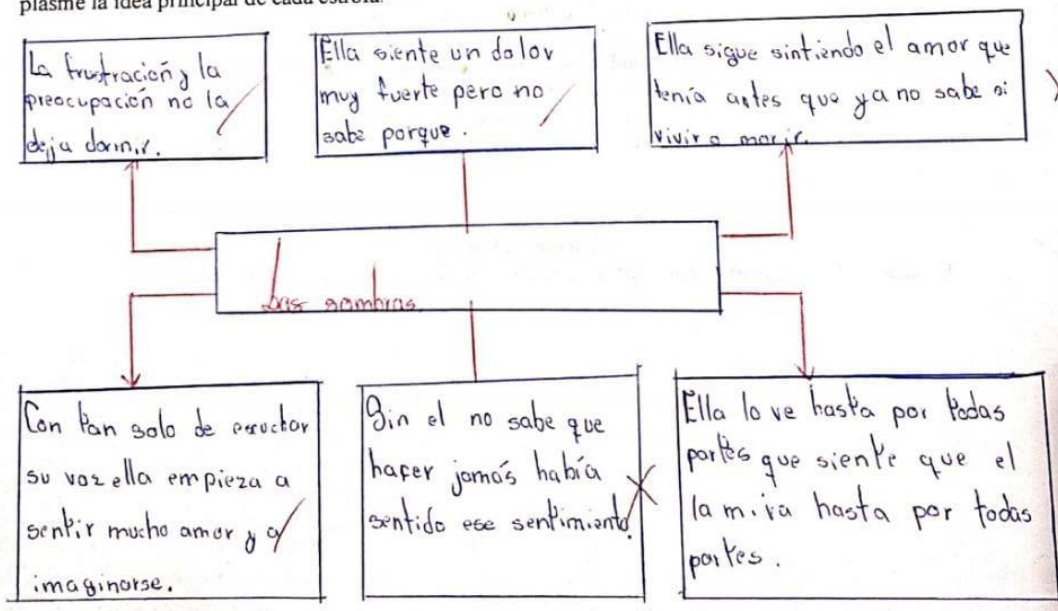 plasme la idea principal de cada estrofa.
La frustración y la
preocupación no la
deja dormir.
Ella siente un dolor
muy fuerte pero no
sabe porque.
Ella sigue sintiendo el amor que
tenía antes que ya no sabe si
vivir o morir.
Las sombras.
Con tan solo de escuchar
su voz ella empieza a
sentir mucho amor y a
imaginarse.
Sin el no sabe que
hacer jamás había
sentido ese sentimiento.
Ella lo ve hasta por todas
partes que siente que el
la mira hasta por todas
partes.